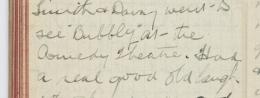 Smith & Davy went to
see "Bubbly" at the
Comedy Theatre. Had
a real good old laugh